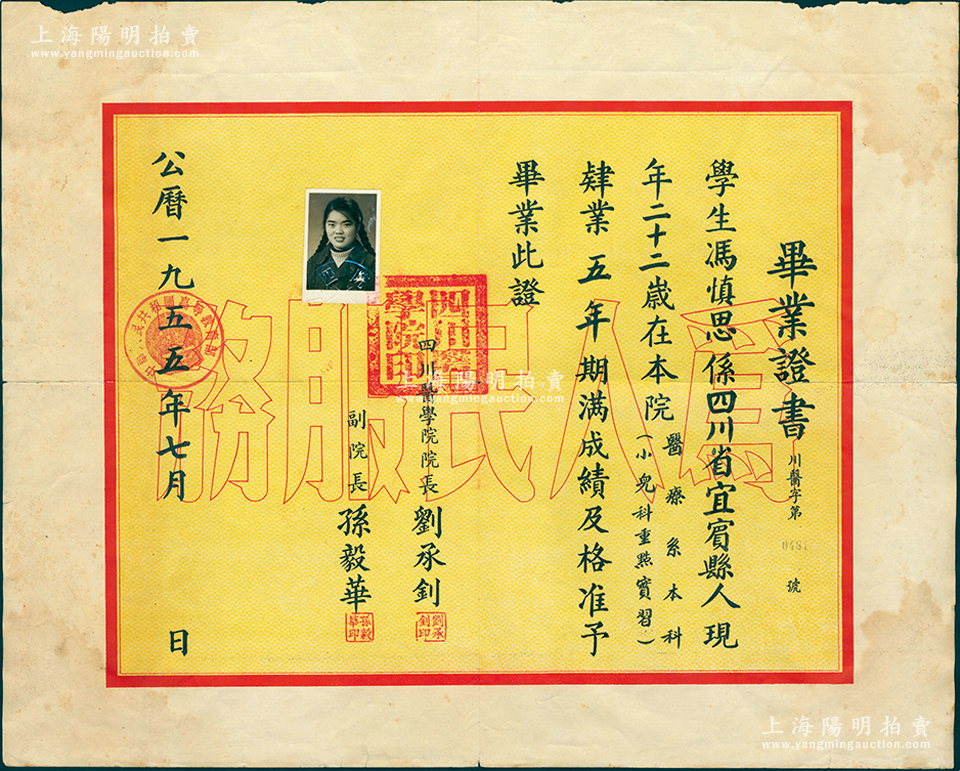 上海陽明拍賣
www.yangmingauction.com
畢業證書
川醫字第0481號
學生馮慎思係四川省宜賓縣人現
年二十二歲在本院醫療系本科
(小兒科重點實習)
肄業五年期滿成績及格准予
畢業此證
四川醫學院院長劉承釗
劉承釗印
副院長孫毅華
孫毅華印
四川醫學院印
公曆一九五五年七月 日
為人民服務
上海陽明拍賣
www.yangmingauction.com
上海陽明拍賣
www.yangmingauction.com